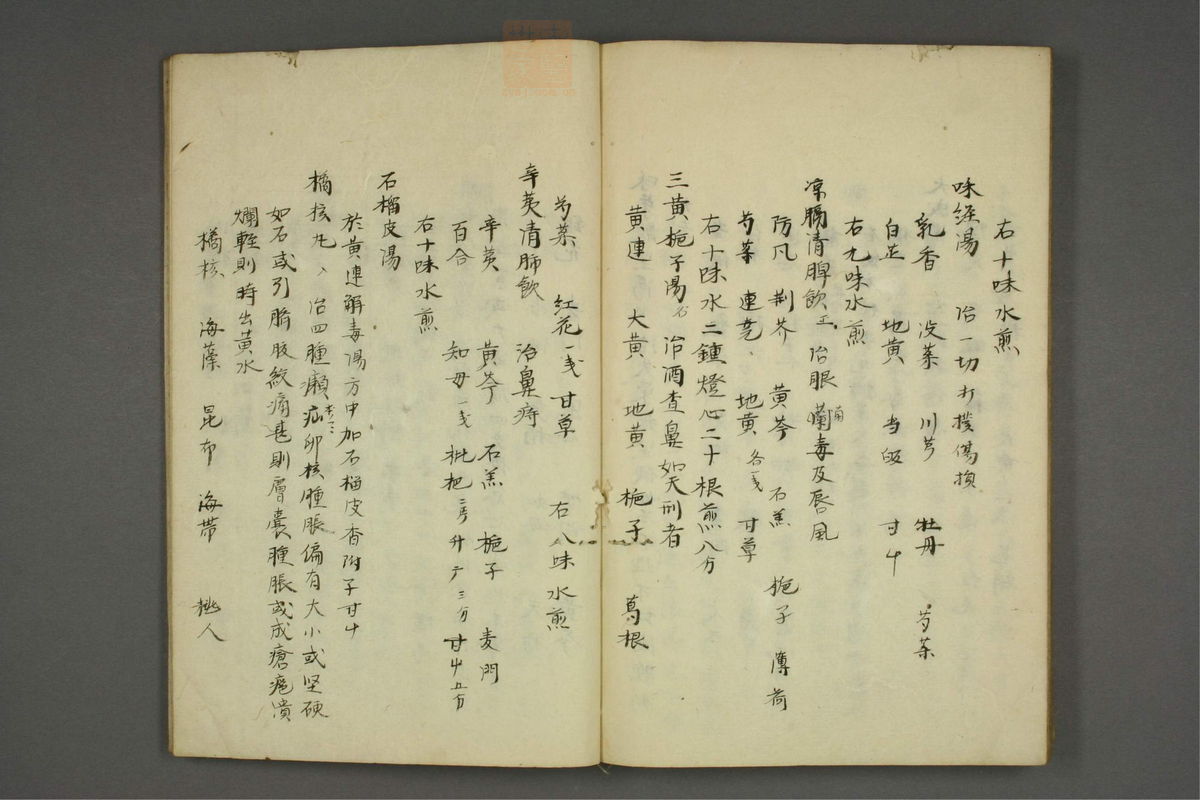 右十味水煎
湯 治一切打撲傷損
乳香 没薬 川芎 牡丹 芍薬
白芷 地黄 当皈 甘中
右九味水煎
凉膈清脾飲 治眼 毒及唇風
防凡 荆芥 黄芩 石羔 梔子 薄荷
芍薬 連尭 地黄 各一戋 甘草
右十味水二鍾燈心二十根煎八分
三黄梔子湯 治酒査鼻如天刑者
黄連 大黄 地黄 梔子 葛根
芍薬 紅花一戋 甘草 右八味水煎
辛荑清肺飲 治鼻痔
辛荑 黄芩 石羔 梔子 麦門
百合 知母一戋 枇把二 升广三分 甘中五分
右十味水煎
石榴皮湯
於黄連解毒湯方中加石榴皮香附子甘中
橘核丸 治四腫癩疝卵核腫脹偏有大小或坚硬
如石或引臍腹絞痛甚則膚囊腫脹或成瘡疤潰
爛軽則時出黄水
橘核 海藻 昆布 海帯 桃人